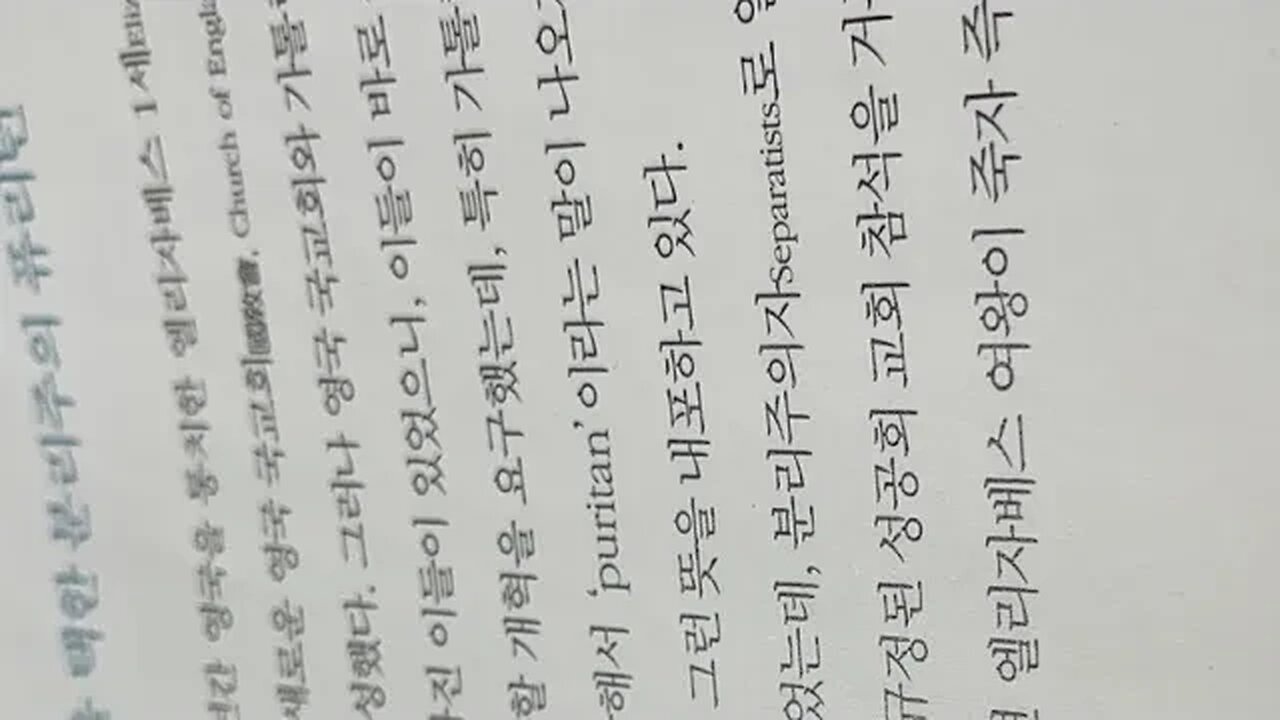 택한 분리주의 퓨리턴
년간 영국을 통치한 엘리자베스 1세
새로운 영국 국교회國敎會, Church of Engl
성했다. 그러나 영국 국교회와 가톨
가진 이들이 있었으니, 이들이 바로
할 개혁을 요구했는데, 특히 가톨
해서 ‘puritan’이라는 말이 나오
그런 뜻을 내포하고 있다.
었는데, 분리주의자Separatists로
규정된 성공회 교회 참석을 거
엘리자베스 여왕이 죽자 즉